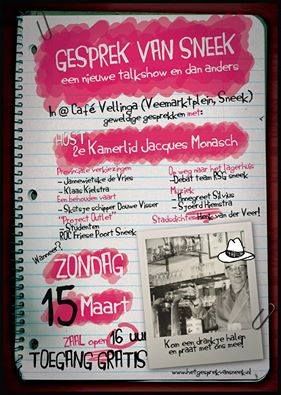 GESPREK VAN SNEEK
een nieuwe talkshow en dan anders
In @ Café Vellinga (Veemarktplein, Sneek)
geweldige gesprekken met:
HOST 2e Kamerlid Jacques Monasch
Provinciale verkiezingen
- Jannewietske de Vries
- Klaas Kielstra
Een behouden vaart
- Skûtsje schipper Douwe Visser
"Project Outlet"
- Studenten
ROC Friese Poort Sneek
Op weg naar het lagerhuis
- Debat team RSG Sneek
Muziek
- Annegreet Silvius
- Sjoerd Hiemstra
Stadsdichter Henk van der Veer!
Wanneer?
ZONDAG
15 Maart
ZAAL open 16 uur
TOEGANG GRATIS
Kom een drankje halen
en praat met ons mee!
www.hetgesprekvansneek.nl